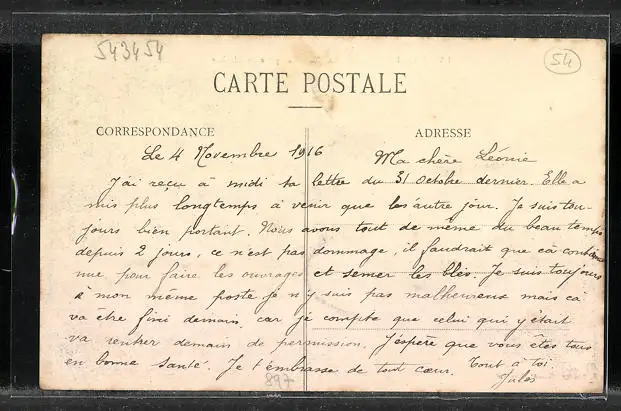 543454
54
CARTE POSTALE
CORRESPONDANCE
ADRESSE
Le 4 Novembre 1916
Ma chère Léonie
J'ai reçu à midi ta lettre du 31 Octobre dernier. Elle a
mis plus longtemps à venir que les autre jour. Je suis tou-
jours bien portant. Nous avons tout de même du beau temps
depuis 2 jours, ce n'est pas dommage, il faudrait que cà conti
nue pour faire les ouvrages et semer les blés. Je suis toujours
à mon même poste je n'y suis pas malheureux mais ca
va être fini demain, car je compte que celui qui y était
va rentrer demain de permission. J'éspère que vous êtes tous
en bonne santé. Je t'embrasse de tout cœur. Tout à toi
Jules
897